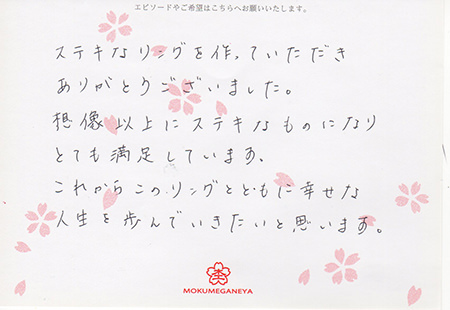 エピソードやご希望はこちらへお願いいたします。
ステキなリングを作っていただき
ありがとうございました。
想像以上にステキなものになり
とても満足しています。
これからこのリングとともに幸せな
人生を歩んでいきたいと思います。
MOKUMEGANEYA